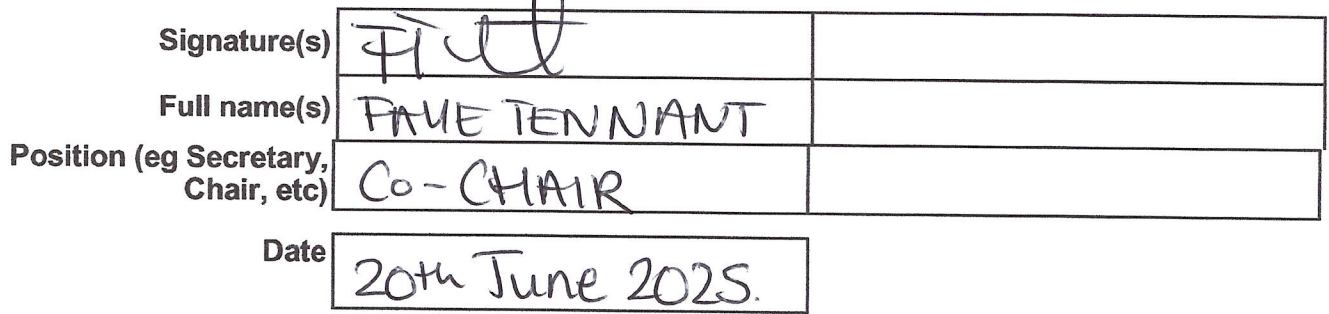 Signature(s)
Full name(s) FAYE TENNANT
Position (eg Secretary,
Chair, etc) Co-CHAIR
Date 20th June 2025.